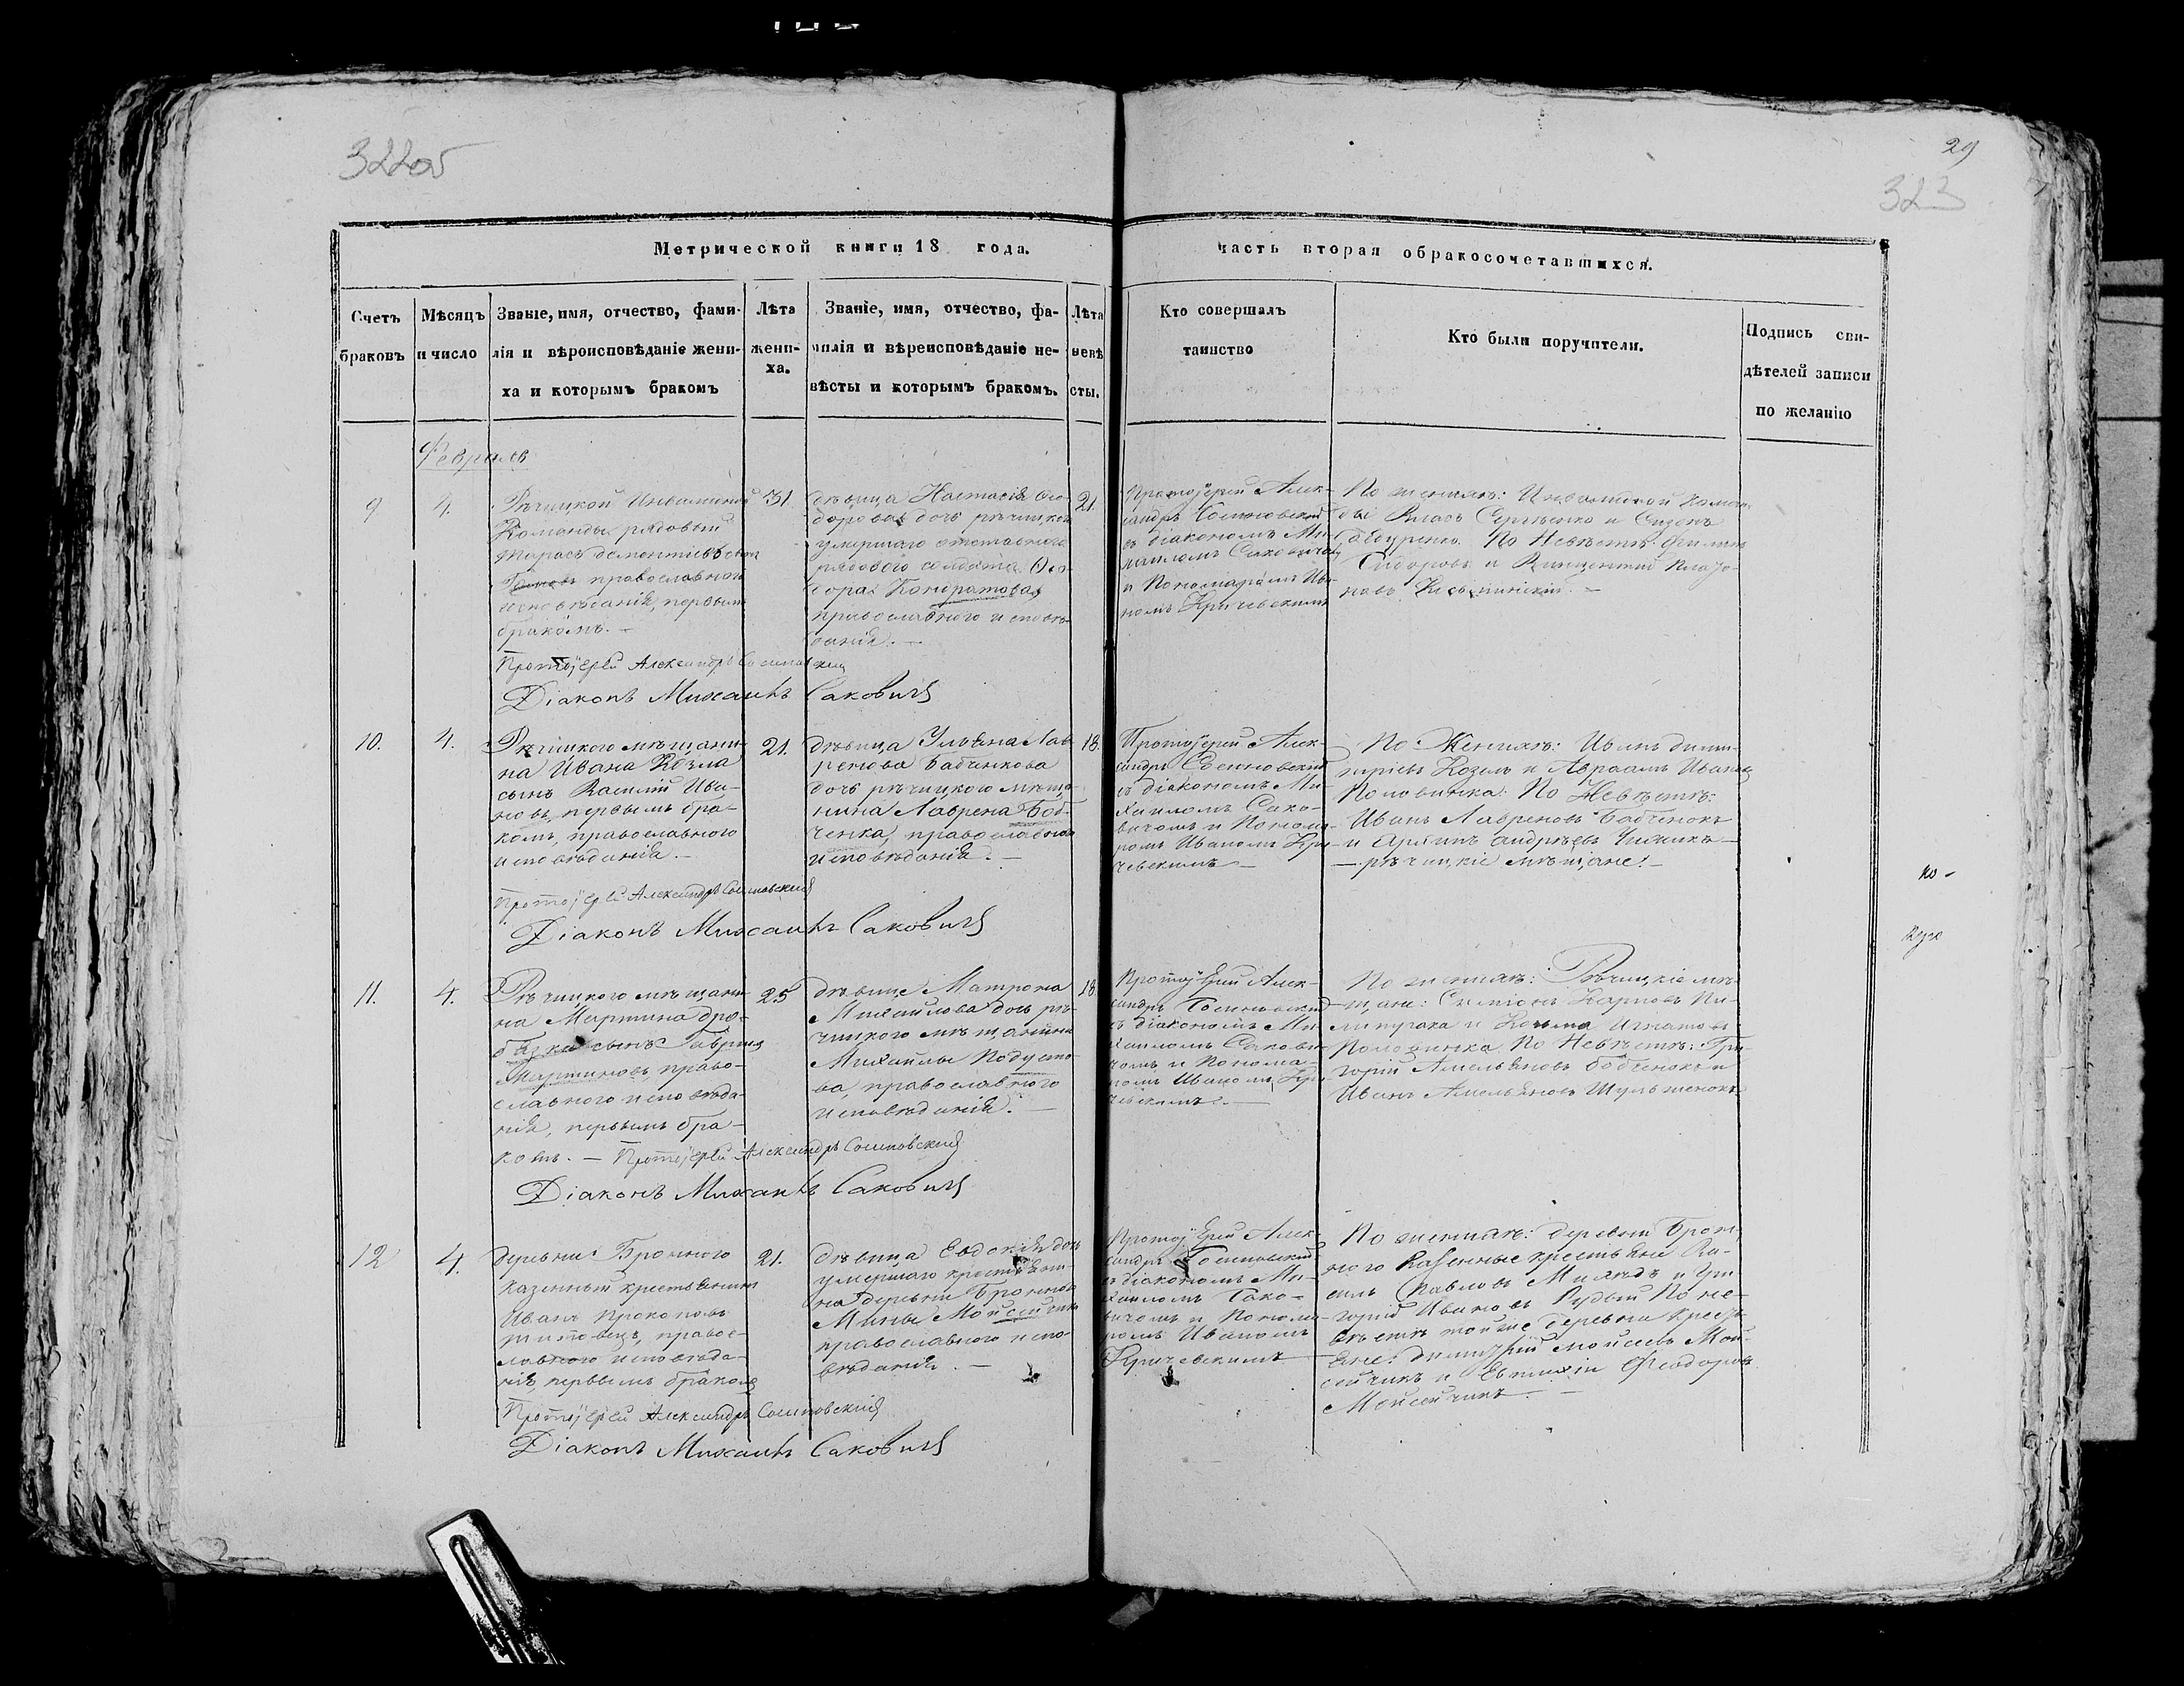 322об
29
323
Метрической книги 18 года.
часть вторая обракосочетавшихся.
Счетъ
браковъ
Мѣсяцъ
и число
Званіе, имя, отчество, фами-
лія и вѣроисповѣданіе жени-
ха и которымъ бракомъ
Лѣта
жени-
ха.
Званіе, имя, отчество, фа-
милія и вѣреисповѣданіе не-
вѣсты и которымъ бракомъ.
Лѣта
невѣ
сты.
Кто совершалъ
таинство
Кто были поручители.
Подпись сви-
дѣтелей записи
по желанію
Февраль
9
4.
Рѣчицкой Инвалидной
Команды рядовый
Тарасъ
православнаго
исповѣданія, первымъ
бракомъ. —
31
дѣвица Настасія Ѳео-
дорова дочь рѣчицкой
умершаго отставного
рядового солдата Ѳео-
дора Кондратова
православного исповѣ-
данія. —
21.
Протоіерей Алек-
сандръ Сосиновскій
съ діакономъ Ми-
хаиломъ Саковичемъ
и Пономаремъ Ива-
номъ Кричевскимъ
По женихѣ: Инвалидной коман-
ды Власъ Сергѣенко и
По Невѣстѣ: Филипъ
Сидоровъ и Викентій
Протоіерей Александръ Сосиновскій
Діаконъ Михаилъ Саковичъ
10.
4.
Рѣчицкого мѣщани-
на Ивана Козла
сынъ Василій Ива-
новъ, первымъ бра-
комъ, православного
исповѣданія. —
21.
дѣвица Ульяна Лав-
ренова Бабченкова
дочь рѣчицкого мѣща-
нина Лаврена Боб-
ченка, православного
исповѣданія. —
18.
Протоіерей Алек-
сандръ Сосиновскій
съ діакономъ Ми-
хаиломъ Сако-
вичомъ и Понома-
ромъ Иваномъ Кри-
чевскимъ —
По Женихѣ: Иванъ Дими-
тріевъ Козелъ и Авраамъ Ивановъ
Половинка: По Невѣстѣ:
Иванъ Лавреновъ Бабченокъ
и андрѣевъ
— рѣчицкіе мѣщане. —
Протоіерей Александръ Сосиновскій
Діаконъ Михаилъ Саковичъ
11.
4.
Рѣчицкого мѣщани-
на Мартина Дро-
сынъ Гаврила
Мартиновъ, право-
славного исповѣда-
нія, первымъ бра-
комъ. — Протоіерей Александръ Сосиновскій
25
дѣвице Матрона
Михаилова дочь рѣ-
чицкого мѣщанина
Михайлы
православного
исповѣданія. —
18.
Протоіерей Алек-
сандръ Сосиновскій
съ діакономъ Ми-
хаиломъ Сакови-
чомъ и Понома-
ромъ Иваномъ Кри-
чевскимъ. —
По женихѣ: Рѣчицкіе мѣ-
щане: Симіонъ Карповъ Пи-
и Козьма Игнатовъ
Половинка. По Невѣстѣ: Гри-
горій Амельяновъ Бобченокъ и
Иванъ Амельяновъ
Діаконъ Михаилъ Саковичъ
12
4.
деревни Бронного
казенный крестьянинъ
Иванъ Прокоповъ
правос-
лавного исповѣда-
нія, первымъ бракомъ
21.
дѣвица Евдокія дочь
умершаго крестьяни-
на деревни Бронного
Мины Мойсейчика
православного испо-
вѣданія. —
Протоіерей Алек-
сандръ Сосиновскій
съ діакономъ Ми-
хаиломъ Сако-
вичомъ и Понома-
ромъ Иваномъ
Кричевскимъ
По женихѣ: деревни Брон-
ного Казенные крестьяне Ва-
силь Павловъ и Гри-
горій Ивановъ Рудый По не-
вѣстѣ тойже деревни кресть-
яне: Димитрій Мойсеевъ Мой-
сейчикъ и Евтихій Феодоровъ
Мойсейчикъ. —
Протоіерей Александръ Сосиновскій
Діаконъ Михаилъ Саковичъ